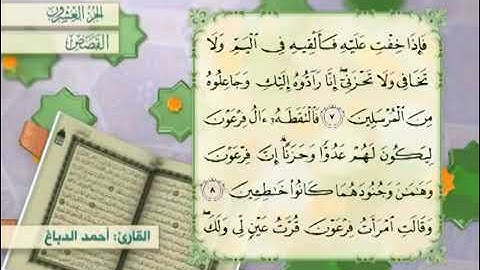 الجزء العشرون
القصص
فَإِذَا خِفْتِ عَلَيْهِ فَأَلْقِيهِ فِي الْيَمِّ وَلَا
تَخَافِي وَلَا تَحْزَنِي ۖ إِنَّا رَادُّوهُ إِلَيْكِ وَجَاعِلُوهُ
مِنَ الْمُرْسَلِينَ ٧ فَالْتَقَطَهُ ءَالُ فِرْعَوْنَ
لِيَكُونَ لَهُمْ عَدُوًّا وَحَزَنًا ۗ إِنَّ فِرْعَوْنَ
وَهَٰمَٰنَ وَجُنُودَهُمَا كَانُوا خَٰطِـِٔينَ ٨
وَقَالَتِ امْرَأَتُ فِرْعَوْنَ قُرَّتُ عَيْنٍ لِّي وَلَكَ ۖ
القارئ: أحمد الدباغ